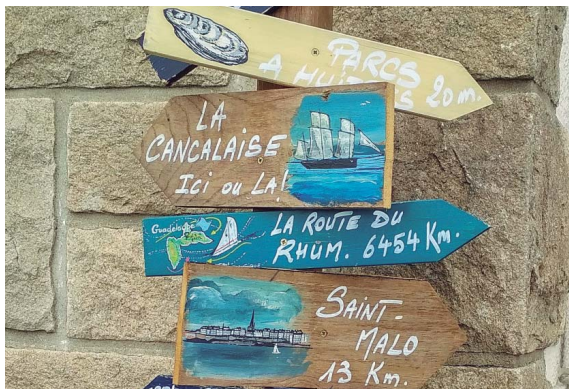 PARCS
A HUÎTRES 20 m.
LA
CANCALAISE
Ici ou LA!
Guadeloupe
LA ROUTE DU
RHUM. 6454 Km.
SAINT-
MALO
13 Km.